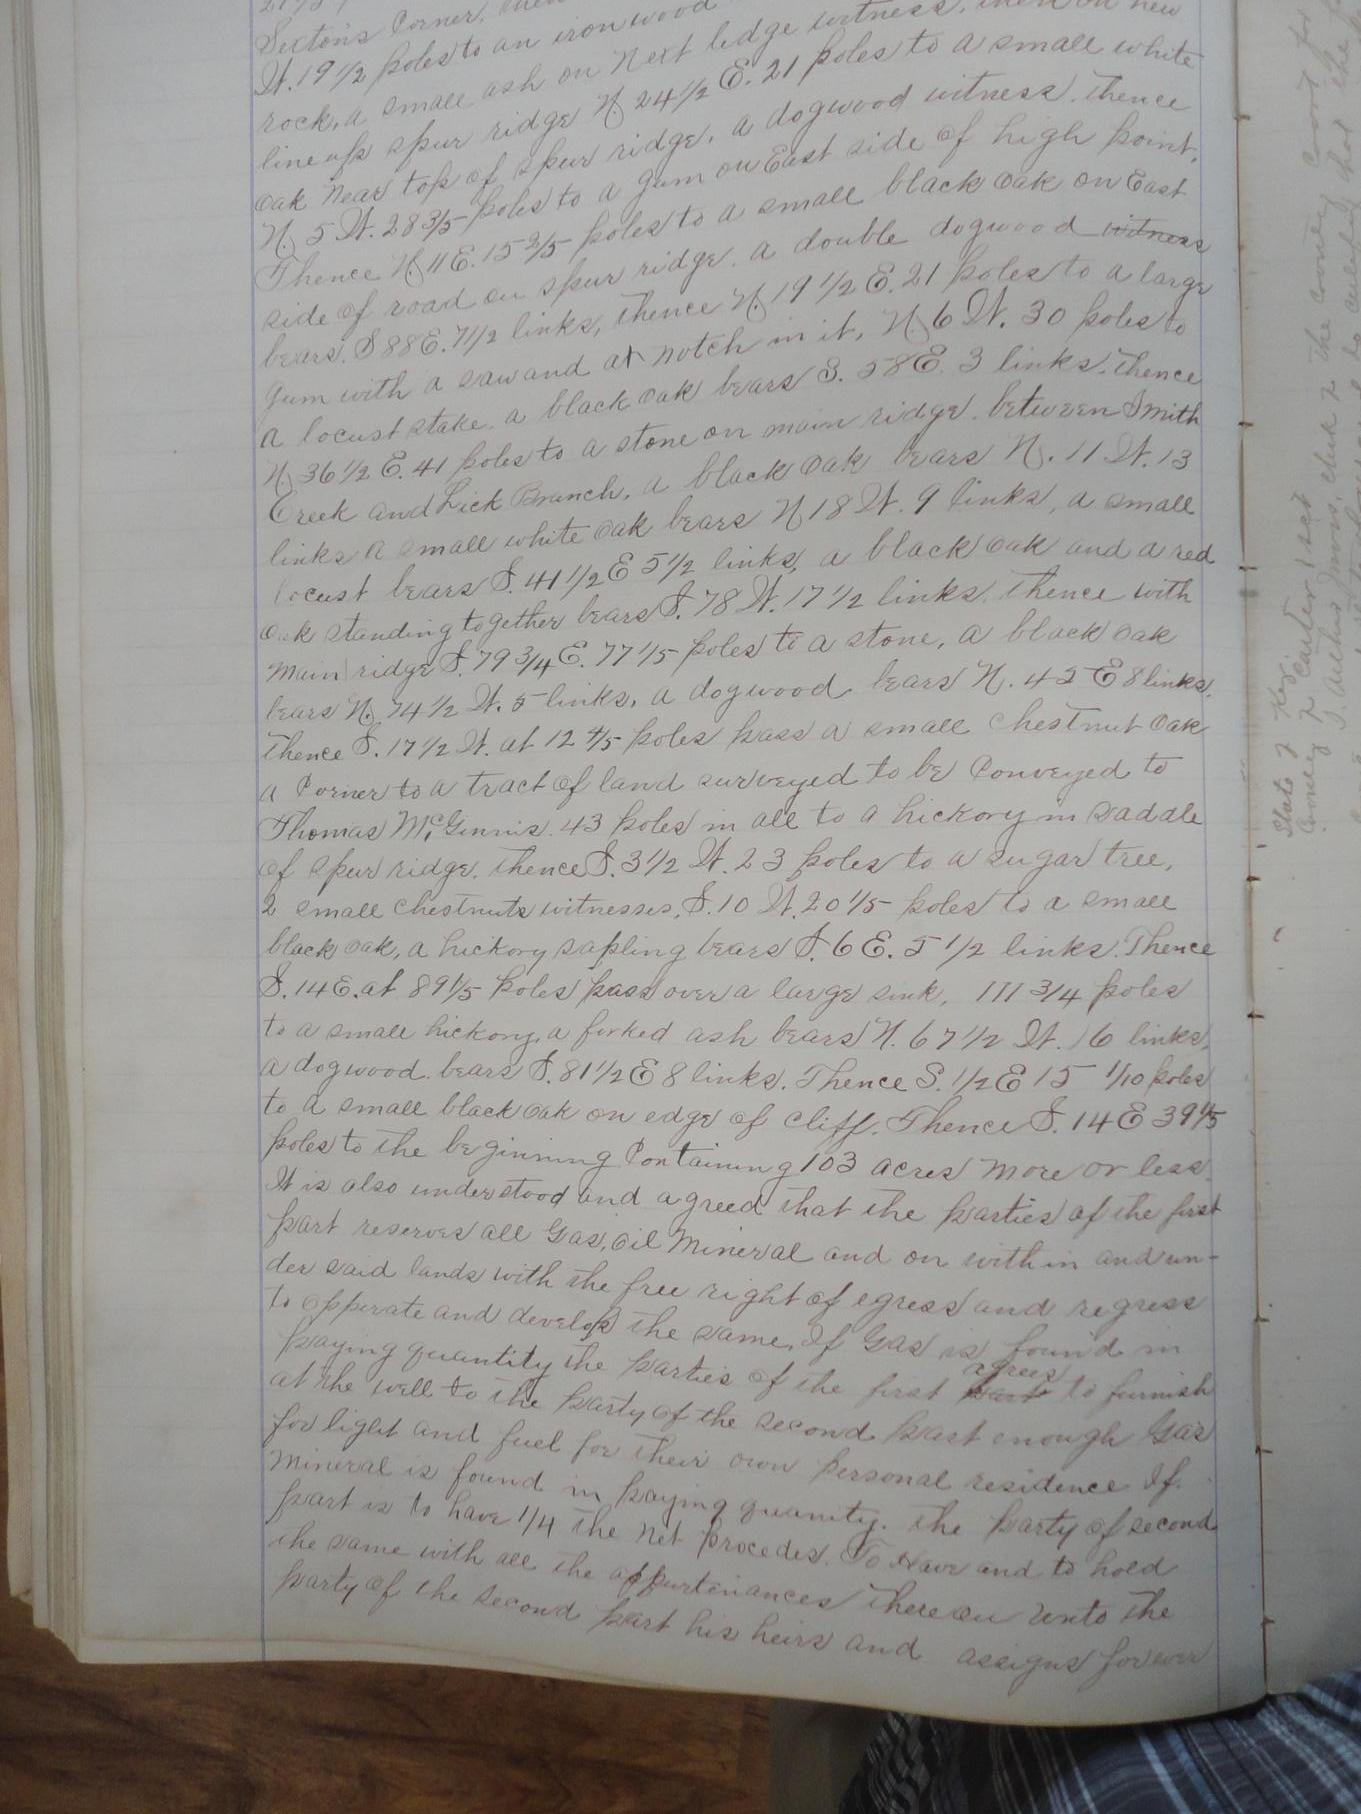 Sexton's Corner, then
W. 19 1/2 poles to an ironwood
rock, a small ash on next ledge witness, then on new
line up spur ridge N 24 1/2 E. 21 poles to a small white
oak near top of spur ridge, a dogwood witness. Thence
N. 5 W. 28 3/5 poles to a gum on East side of high point,
Thence N 11 E. 15 2/5 poles to a small black oak on East
side of road on spur ridge. a double dogwood witness
bears. S 88 E. 7 1/2 links, thence N. 19 1/2 E. 21 poles to a large
gum with a saw and at notch in it, N. 6 W. 30 poles to
a locust stake. a black oak bears S. 58 E. 3 links. Thence
N. 36 1/2 E. 41 poles to a stone on main ridge. between Smith
Creek and Lick Branch, a black oak bears N. 11 W. 13
links a small white oak bears N 18 W. 9 links, a small
locust bears S. 41 1/2 E 5 1/2 links, a black oak and a red
oak standing together bears S. 78 W. 17 1/2 links. Thence with
main ridge S. 79 3/4 E. 77 1/5 poles to a stone, a black oak
bears N. 74 1/2 W. 5 links, a dogwood bears N. 45 E 8 links.
Thence S. 17 1/2 W. at 12 4/5 poles pass a small chestnut oak
a Corner to a tract of land surveyed to be Conveyed to
Thomas McGinnis. 43 poles in all to a hickory in saddle
of spur ridge. thence S. 3 1/2 W. 23 poles to a sugar tree,
2 small chestnuts witnesses, S. 10 W. 20 1/5 poles to a small
black oak, a hickory sapling bears S. 6 E. 5 1/2 links. Thence
S. 14 E. at 89 1/5 poles pass over a large sink, 111 3/4 poles
to a small hickory, a forked ash bears N. 67 1/2 W. 16 links,
a dogwood bears S. 81 1/2 E 8 links. Thence S. 1/2 E 15 1/10 poles
to a small black oak on edge of cliff. Thence S. 14 E 39 4/5
poles to the beginning Containing 103 acres more or less.
It is also understood and agreed that the parties of the first
part reserves all Gas, oil mineral and on with in and un-
der said lands with the free right of egress and regress
to opperate and develop the same. If Gas is found in
paying quantity the parties of the first part agrees to furnish
at the well to the party of the second part enough Gas
for light and fuel for their own personal residence If.
mineral is found in paying quanity. the party of second
part is to have 1/4 the net procedes. To Have and to hold
the same with all the appurtenances thereon unto the
party of the second part his heirs and assigns forever
State of Ky.
County of Carter Sct